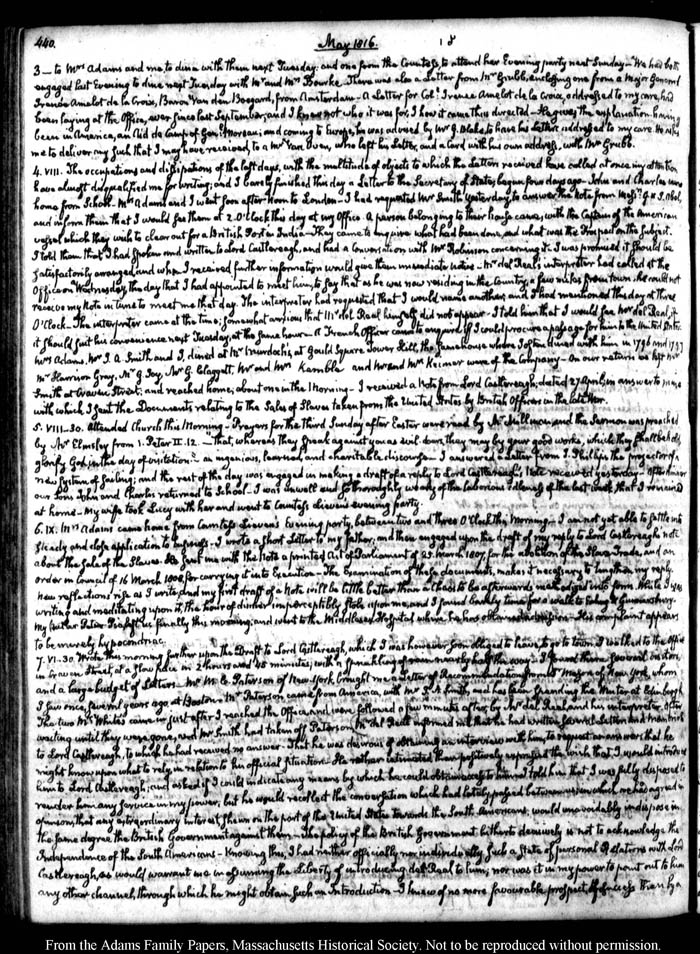 440.
May 1816.
18
3 — to Mrs Adams and me to dine with them next Tuesday: and one from the Countess, to attend her Evening party next Sunday — We had both
engaged last Evening to dine next Tuesday with Mr and Mrs Bourke. There was also a Letter from Mr Grubb, enclosing one from a Major General
Irenée Amelot de la Croix, Baron Van den Boogard, from Amsterdam — A Letter for Coll. Irenee Amelot de la Croix, addressed to my care, had
been laying at the Office, ever since last September, and I knew not who it was for, or how it came thus directed — He gives the explanation having
been in America, an Aid de Camp of Genl. Moreau; and coming to Europe, he was advised by Mr G. Blake to have his Letters addressed to my care. He asks
me to deliver any such that I may have received, to a Mr Van Oven, who left his Letter, and a Card with his own address, with Mr Grubb.
4. VIII. The occupations and dissipations of the last days, with the multitude of objects to which the Letters received have called at once my attention
have almost disqualified me for writing; and I barely finished this day a Letter to the Secretary of State, begun four days ago. John and Charles came
home from School. Mrs Adams and I went soon after Noon to London — I had requested Mr Smith yesterday, to answer the Note from Messrs
and inform them that I would see them at 2. O'Clock this day at my Office. A person belonging to their house came, with the Captain of the American
vessel which they wish to clear out for a British Port in India — They came to enquire what had been done, and what was the Prospect on the subject.
I told them that I had spoken and written to Lord Castlereagh, and had a Conversation with Mr Robinson concerning it. I was promised it should be
satisfactorily arranged, and when I received further information would give them immediate notice — Mr del Real's interpreter had called at the
Office on Wednesday, the day that I had appointed to meet him, to say that as he was now residing in the Country, a few miles from town, he could not
receive my Note in time to meet me that day. The interpreter had requested that I would name another, and I had mentioned this day at three
O'Clock — The interpreter came at the time; somewhat anxious that Mr del Real himself did not appear — I told him that I would see Mr del Real, if
it should suit his convenience next Tuesday, at the same hour — A French Officer came to enquire if I could procure a passage for him to the United States
Mrs Adams, Mr J. A. Smith and I, dined at Mr Murdoch's, at Gould Square Tower Hill, the same house where I often dined with him in 1796 and 1797
Mr Harrison Gray, Mr G. Joy, Mr G. Claggett, Mr and Mrs Kemble and Mr and Mrs Keimer were of the Company — On our return we left Mr
Smith at Craven Street; and reached home, about one in the Morning — I received a Note from Lord Castlereagh, dated 27 April, in answer to mine
with which I sent the Documents relating to the Sales of Slaves taken from the United States by British Officers in the late War.
5. VIII-30. Attended Church this Morning — Prayers for the third Sunday after Easter were read by Mr Hillman and the Sermon was preached
by Mr Elmsley from 1. Peter II. 12. — that, whereas they speak against you as evil doers, they may by your good works, which they shall behold,
glorify God, in the day of visitation — an ingenious, learned, and charitable discourse — I answered a Letter from J. Phillips the projector of a
new System of Sailing; and the rest of the day was engaged in making a draft of a reply to Lord Castlereagh's Note received yesterday — After dinner
our Sons John and Charles returned to School — I was unwell and so thoroughly weary of the laborious Idleness of the last week, that I remained
at home — My wife took Lucy with her and went to Countess Lieven's evening party.
6. IX. Mrs Adams came home from Countess Lieven's Evening party, between two and three O'Clock this Morning — I am not yet able to settle into
steady and close application to business — I wrote a short Letter to my father, and then engaged upon the draft of my reply to Lord Castlereagh's note
about the Sale of the Slaves. He sent me with the Note a printed Act of Parliament of 25. March 1807, for the abolition of the Slave Trade, and an
order in Council of 16 March 1808 for carrying it into Execution — The Examination of these documents, makes it necessary to lengthen my reply.
New reflections rise as I write and my first draft of a Note will be little better than a chaos to be afterwards methodized into form. While I was
writing and meditating upon it, the hour of dinner imperceptibly stole upon me, and I found barely time for a walk to Ealing &
My Butler Peter left us finally this morning, and went to the Middlesex Hospital where he has obtained admission — His complaint appears
to be merely hypocondriac.
7. VI-30 Wrote this morning further upon the Draft to Lord Castlereagh, which I was however soon obliged to leave, to go to town. I walked to the Office
in Craven Street, at a slow pace in 2 hours and 45 minutes, with a sprinkling of rain nearly half the way. I found there several visitors,
and a large budget of Letters. Mr W. E. Paterson of New-York brought me a Letter of Recommendation from the Mayor of New York, whom
I saw once, several years ago at Boston. Mr Paterson came from America, with Mr J. A. Smith, and has been spending the Winter at Edinburgh
The two Mr Whites came in just after I reached the Office, and were followed a few minutes after, by Mr del Real, and his interpreter. After
waiting until they were gone, and Mr Smith had taken off Paterson, Mr del Real informed me that he had written several Letters
to Lord Castlereagh, to which he had received no answer. That he was desirous of obtaining an interview with him, to request an answer that he
might know upon what to rely, in relation to his official situation. He rather intimated than positively expressed the wish that I would introduce
him to Lord Castlereagh; and asked if I could indicate any means by which he could obtain access to him. I told him that I was fully disposed to
render him any service in my power, but he would recollect the conversation which had lately passed between us, in which we had agreed in
opinion, that any extraordinary interest shewn on the part of the United States towards the South Americans, would unavoidably indispose in
the same degree the British Government against them — The policy of the British Government hitherto decisively is not to acknowledge the
Independence of the South Americans — Knowing this, I had neither officially nor individually such a State of personal Relations with Lord
Castlereagh, as would warrant me in assuming the Liberty of introducing del Real to him; nor was it in my power to point out to him
any other channel, through which he might obtain such an Introduction — I knew of no more favourable prospect of success than by a
From the Adams Family Papers, Massachusetts Historical Society. Not to be reproduced without permission.